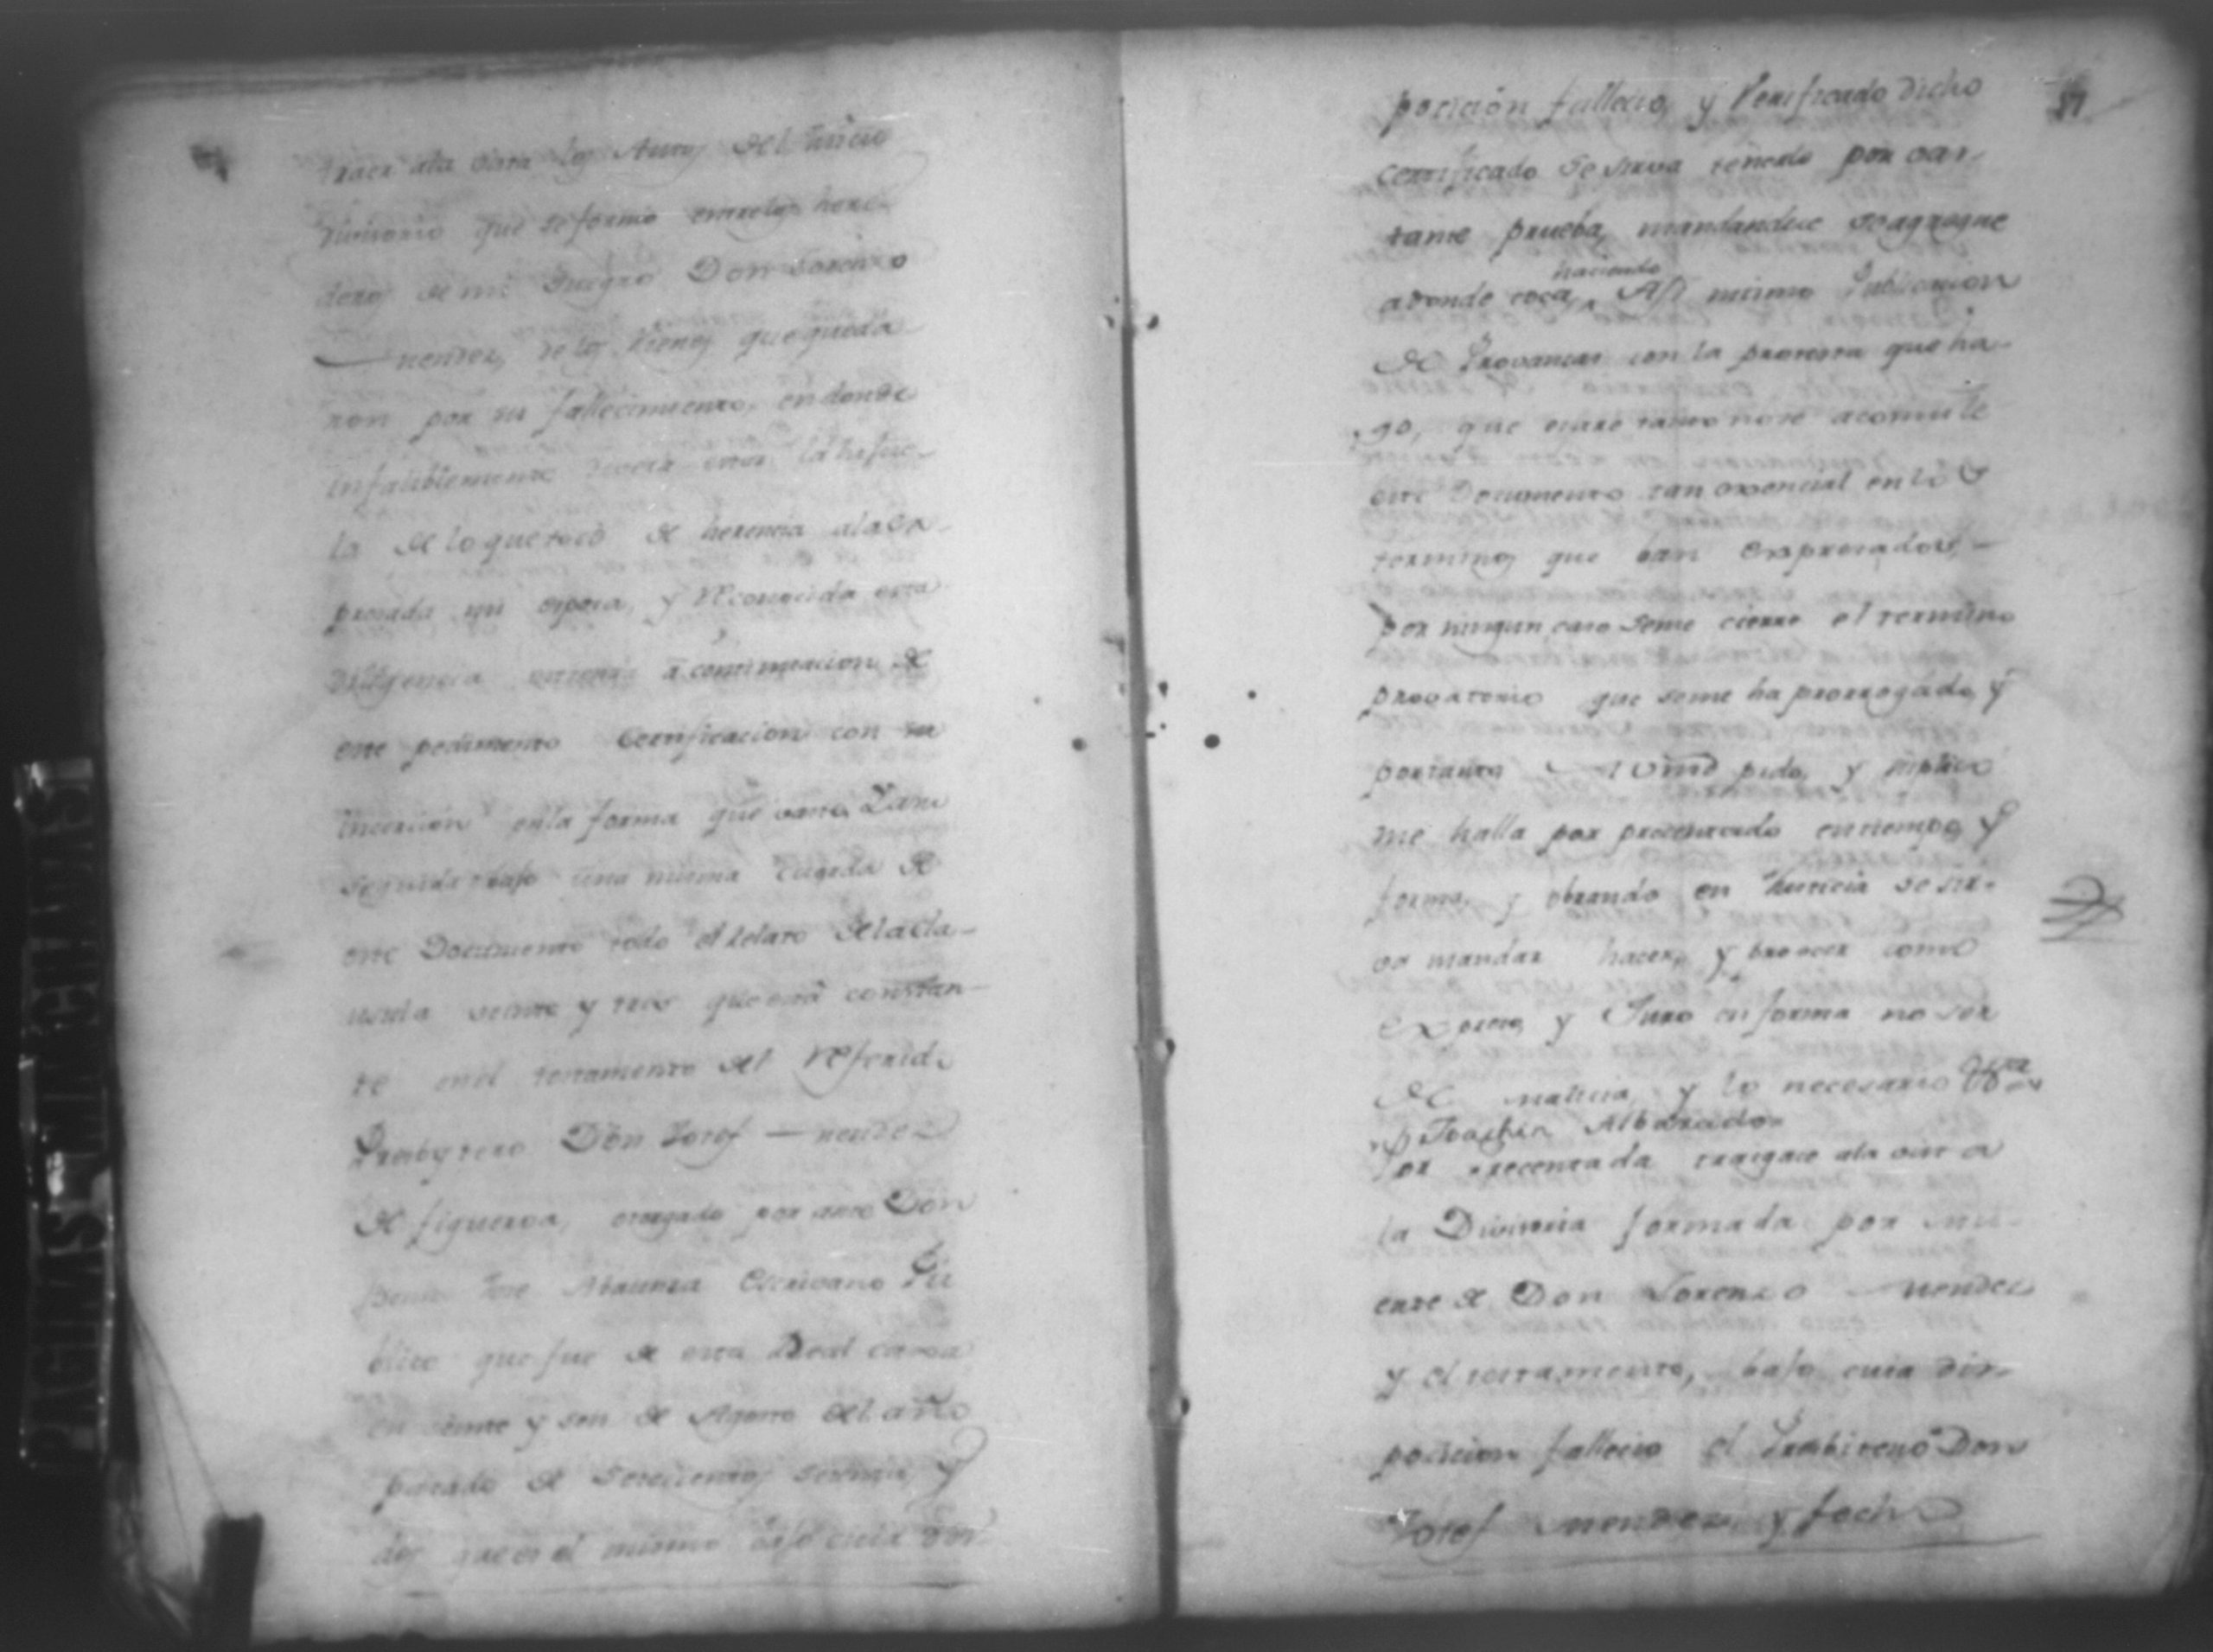 traer ala vista los Autos del Juicio
divisorio que se formó entrelos here-
deros de mi Suegro Don Lorenzo
Mendez, de los bienes que queda-
ron por su fallecimiento, en donde
infaliblemente estar la hijue-
la de lo que tocó de herencia ala ex-
presada mi esposa, y reconocida esta
diligencia a continuacion de
este pedimento Certificacion con su
incercion enla forma que
Seguida bajo una misma de
este Documento todo el relato dela cla-
usula veinte y tres que está constan-
te en el testamento del referido
Presbytero Don Josef Mendez
de figueroa, otorgado por ante Don
Jose Abaunza Escrivano Pu
blico que fue de esta Real
en veinte y seis de Agosto del año
pasado de Setecientos setenta y
dos que es el mismo bajo cuia dis-
posicion fallecio, y Verificado dicho
certificado Se sirva tenerlo por vas-
tante prueba, mandandose se agregue
adonde toca, haciendo Assi mismo Publicacion
de Provanzas con la protesta que ha-
go, que entre tanto no se acomule
este Documento tan esencial enlos
terminos que ban Expresados,
por ningun caso Seme cierre el termino
provatorio que seme ha prorrogado, y
portanto A Vmd pido, y suplico
me halla por presentado en tiempo, y
forma, y obrando en Justicia se sir-
va mandar hacer, y proveer como
Expreso, y Juro en forma no ser
de malicia, y lo necesario &ra
Joachin Albarado
Por precentada traigase ala vista
la Divisoria formada por mu-
erte de Don Lorenzo Mendez
y el testamento, bajo cuia dis-
posicion fallecio el Presbitero Don
Josef Mendez, y fecho